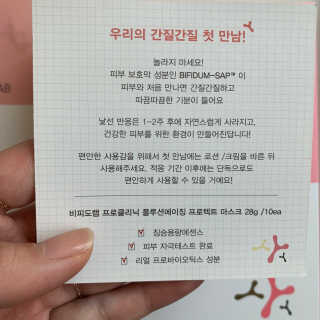 우리의 간질간질 첫 만남!
놀라지 마세요!
피부 보호막 성분인 BIFIDUM-SAP™ 이
피부와 처음 만나면 간질간질하고
따끔따끔한 기분이 들어요
낯선 반응은 1-2주 후에 자연스럽게 사라지고,
건강한 피부를 위한 환경이 만들어진답니다!
편안한 사용감을 위해서 첫 만남에는 로션 /크림을 바른 뒤
사용해주세요. 적응 기간 이후에는 단독으로도
편안하게 사용할 수 있을 거예요!
비피도랩 프로클리닉 폴루션에이징 프로텍트 마스크 28g /10ea
침습용량에센스
피부 자극테스트 완료
리얼 프로바이오틱스 성분
AB